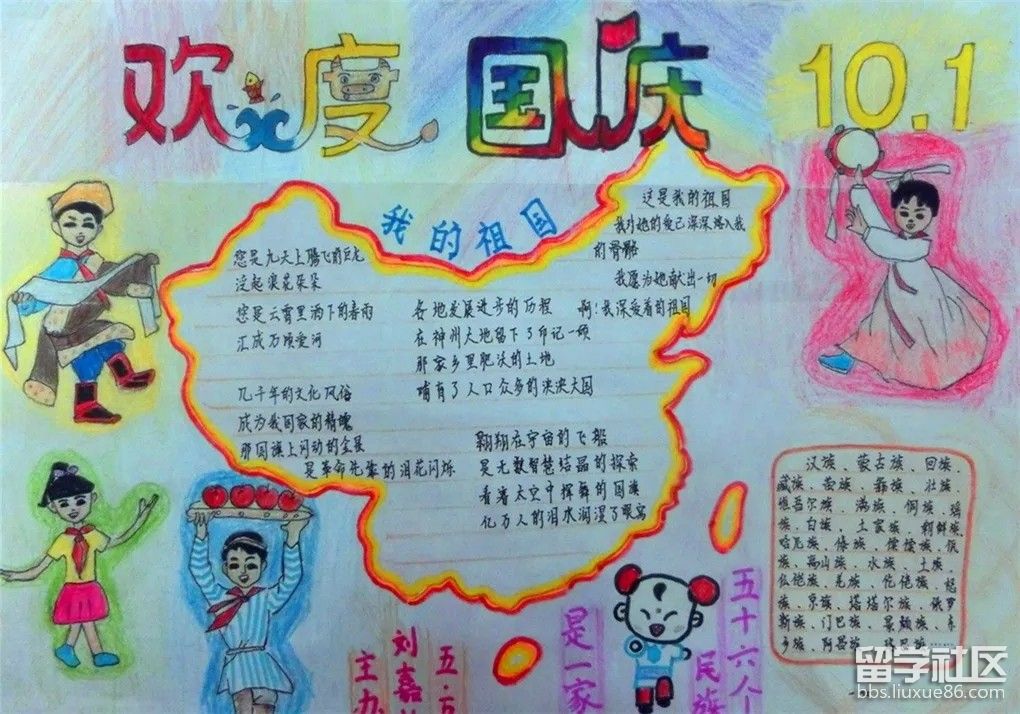 欢度国庆 10.1
我的祖国
您是九天上腾飞的巨龙
泛起浪花朵朵
您是云霄里洒下的春雨
汇成万顷爱河
几千年的文化风俗
成为我国家的精魄
那国旗上闪动的金星
是革命先辈的泪花闪烁
各地发展进步的历程
在神州大地留下了印记一颗
那家乡里肥沃的土地
哺育了人口众多的泱泱大国
翱翔在宇宙的飞船
是无数智慧结晶的探索
看着太空中挥舞的国旗
亿万人的泪水润湿了眼窝
这是我的祖国
我对她的爱已深深熔入我
的骨骼
我愿为她献出一切
啊!我深爱着的祖国
五十六个
民族
是一家
五.五
刘嘉
主办
汉族、蒙古族、回族、
藏族、苗族、彝族、壮族、
维吾尔族、满族、侗族、瑶
族、白族、土家族、朝鲜族、
哈尼族、傣族、傈僳族、佤
族、高山族、水族、土族、
仫佬族、羌族、仡佬族、怒
族、京族、塔塔尔族、俄罗
斯族、门巴族、景颇族、
乡族、阿昌族、珞巴族……
留学社区
bbs.liuxue86.com